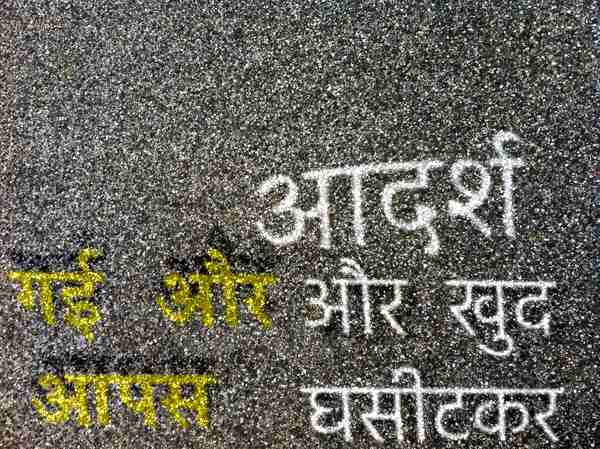 आदर्श
गई और और खुद
आपस घसीटकर